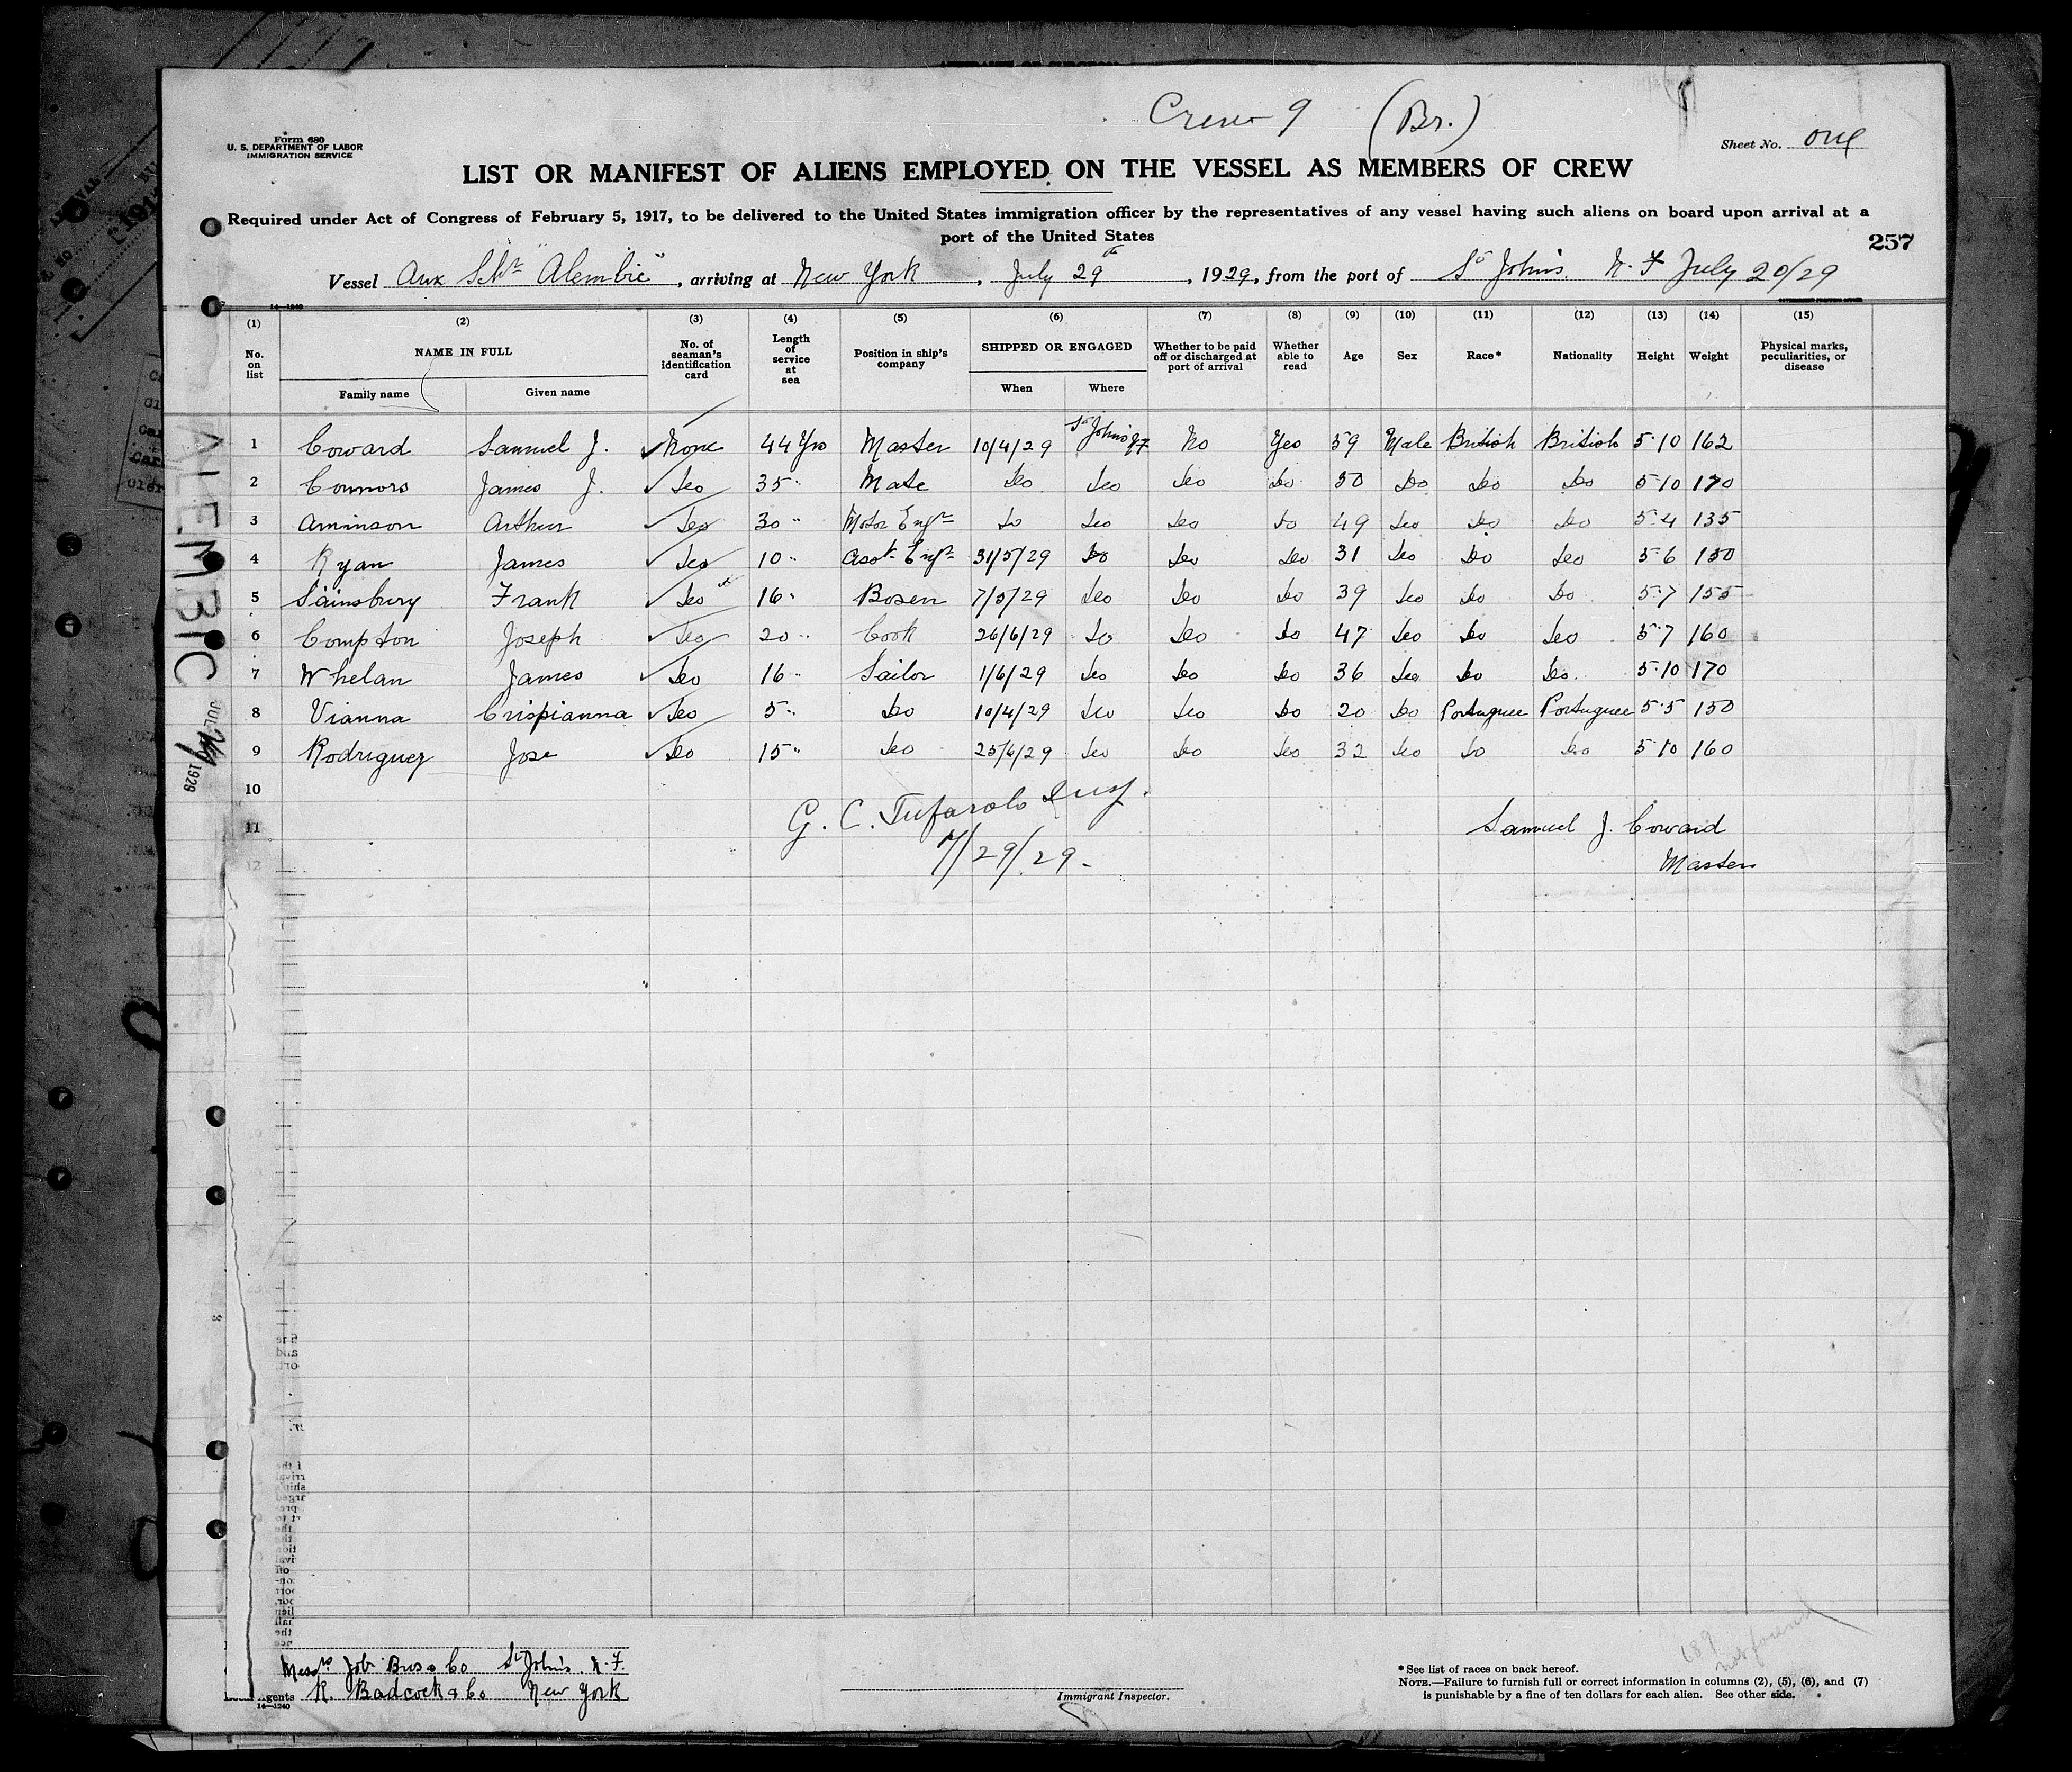 Crew 9 (Br.)
Form 680
U. S. DEPARTMENT OF LABOR
IMMIGRATION SERVICE
Sheet No. one
LIST OR MANIFEST OF ALIENS EMPLOYED ON THE VESSEL AS MEMBERS OF CREW
Required under Act of Congress of February 5, 1917, to be delivered to the United States immigration officer by the representatives of any vessel having such aliens on board upon arrival at a
port of the United States
257
Vessel Aux Schr "Alembic", arriving at New York, July 29th, 1929, from the port of St Johns. N. F July 20/29
14-1240
(1) (2) (3) (4) (5) (6) (7) (8) (9) (10) (11) (12) (13) (14) (15)
No. on list NAME IN FULL Family name Given name No. of seaman's identification card Length of service at sea Position in ship's company SHIPPED OR ENGAGED When Where Whether to be paid off or discharged at port of arrival Whether able to read Age Sex Race* Nationality Height Weight Physical marks, peculiarities, or disease
1 Coward Samuel J. None 44 Yrs Master 10/4/29 St Johns NF No Yes 59 Male British British 5·10 162
2 Connors James J. Do 35 " Mate Do Do Do Do 50 Do Do Do 5·10 170
3 Aminson Arthur Do 30 " Motor Engr Do Do Do Do 49 Do Do Do 5·4 135
4 Ryan James Do 10 " Asst Engr 31/5/29 Do Do Do 31 Do Do Do 5·6 150
5 Sainsbury Frank Do 16 " Bosen 7/5/29 Do Do Do 39 Do Do Do 5·7 155
6 Compton Joseph Do 20 " Cook 26/6/29 Do Do Do 47 Do Do Do 5·7 160
7 Whelan James Do 16 " Sailor 1/6/29 Do Do Do 36 Do Do Do. 5·10 170
8 Vianna Crispianna Do 5 " Do 10/4/29 Do Do Do 20 Do Portuguee Portuguee 5·5 150
9 Rodriguez Jose Do 15 " Do 25/6/29 Do Do Do 32 Do Do Do 5·10 160
10
11
12
G. C. Tufarolo Insp.
7/29/29-
Samuel J. Coward
Master
ALEMBIC
JUL 29 1929
Messrs Job Bros & Co St Johns. N. F.
gents R. Badcock & Co New York
14—1240
Immigrant Inspector.
* See list of races on back hereof.
NOTE.—Failure to furnish full or correct information in columns (2), (5), (6), and (7)
is punishable by a fine of ten dollars for each alien. See other side.